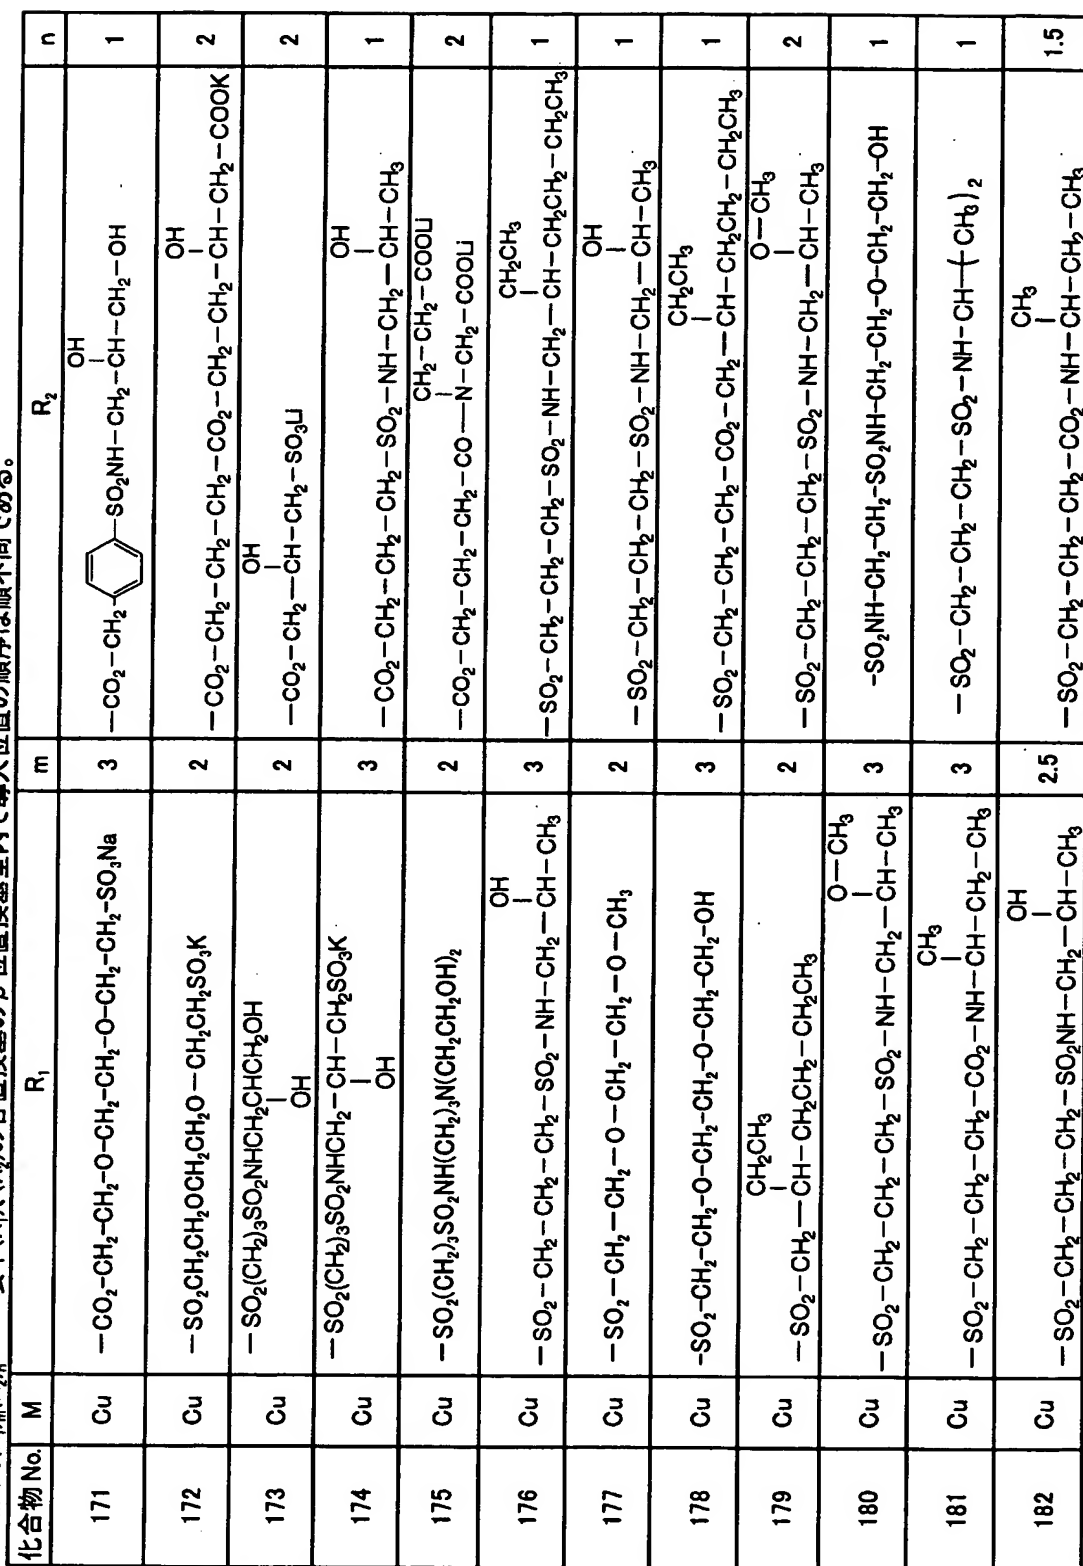 置換基のβ位置換基型内で導入位置の順序は順不同である。
化合物 No. M R₁ m R₂ n
171 Cu —CO₂-CH₂-CH₂-O-CH₂-CH₂-O-CH₂-CH₂-SO₃Na 3 —CO₂—CH₂—C₆H₄—SO₂NH—CH₂—CH(OH)—CH₂—OH 1
172 Cu —SO₂CH₂CH₂OCH₂CH₂O—CH₂CH₂SO₃K 2 —CO₂—CH₂—CH₂—CH₂—CO₂—CH₂—CH₂—CH(OH)—CH₂—COOK 2
173 Cu —SO₂(CH₂)₃SO₂NHCH₂CH(OH)CH₂OH 2 —CO₂—CH₂—CH(OH)—CH₂—SO₃Li 2
174 Cu —SO₂(CH₂)₃SO₂NHCH₂—CH(OH)—CH₂SO₃K 3 —CO₂—CH₂—CH₂—CH₂—SO₂—NH—CH₂—CH(OH)—CH₃ 1
175 Cu —SO₂(CH₂)₃SO₂NH(CH₂)₃N(CH₂CH₂OH)₂ 2 —CO₂—CH₂—CH₂—CH₂—CO—N(CH₂—CH₂—COOLi)—CH₂—COOLi 2
176 Cu —SO₂—CH₂—CH₂—CH₂—SO₂—NH—CH₂—CH(OH)—CH₃ 3 —SO₂—CH₂—CH₂—CH₂—SO₂—NH—CH₂—CH(CH₂CH₃)—CH₂CH₂—CH₂CH₃ 1
177 Cu —SO₂—CH₂—CH₂—O—CH₂—CH₂—O—CH₃ 2 —SO₂—CH₂—CH₂—CH₂—SO₂—NH—CH₂—CH(OH)—CH₃ 1
178 Cu -SO₂-CH₂-CH₂-O-CH₂-CH₂-O-CH₂-CH₂-OH 3 —SO₂—CH₂—CH₂—CH₂—CO₂—CH₂—CH(CH₂CH₃)—CH₂CH₂—CH₂CH₃ 1
179 Cu —SO₂—CH₂—CH(CH₂CH₃)—CH₂CH₂—CH₂CH₃ 2 —SO₂—CH₂—CH₂—CH₂—SO₂—NH—CH₂—CH(O—CH₃)—CH₃ 2
180 Cu —SO₂—CH₂—CH₂—CH₂—SO₂—NH—CH₂—CH(O—CH₃)—CH₃ 3 -SO₂NH-CH₂-CH₂-SO₂NH-CH₂-CH₂-O-CH₂-CH₂-OH 1
181 Cu —SO₂—CH₂—CH₂—CH₂—CO₂—NH—CH(CH₃)—CH₂—CH₃ 3 —SO₂—CH₂—CH₂—CH₂—SO₂—NH—CH—(CH₃)₂ 1
182 Cu —SO₂—CH₂—CH₂—CH₂—SO₂NH—CH₂—CH(OH)—CH₃ 2.5 —SO₂—CH₂—CH₂—CH₂—CO₂—NH—CH(CH₃)—CH₂—CH₃ 1.5